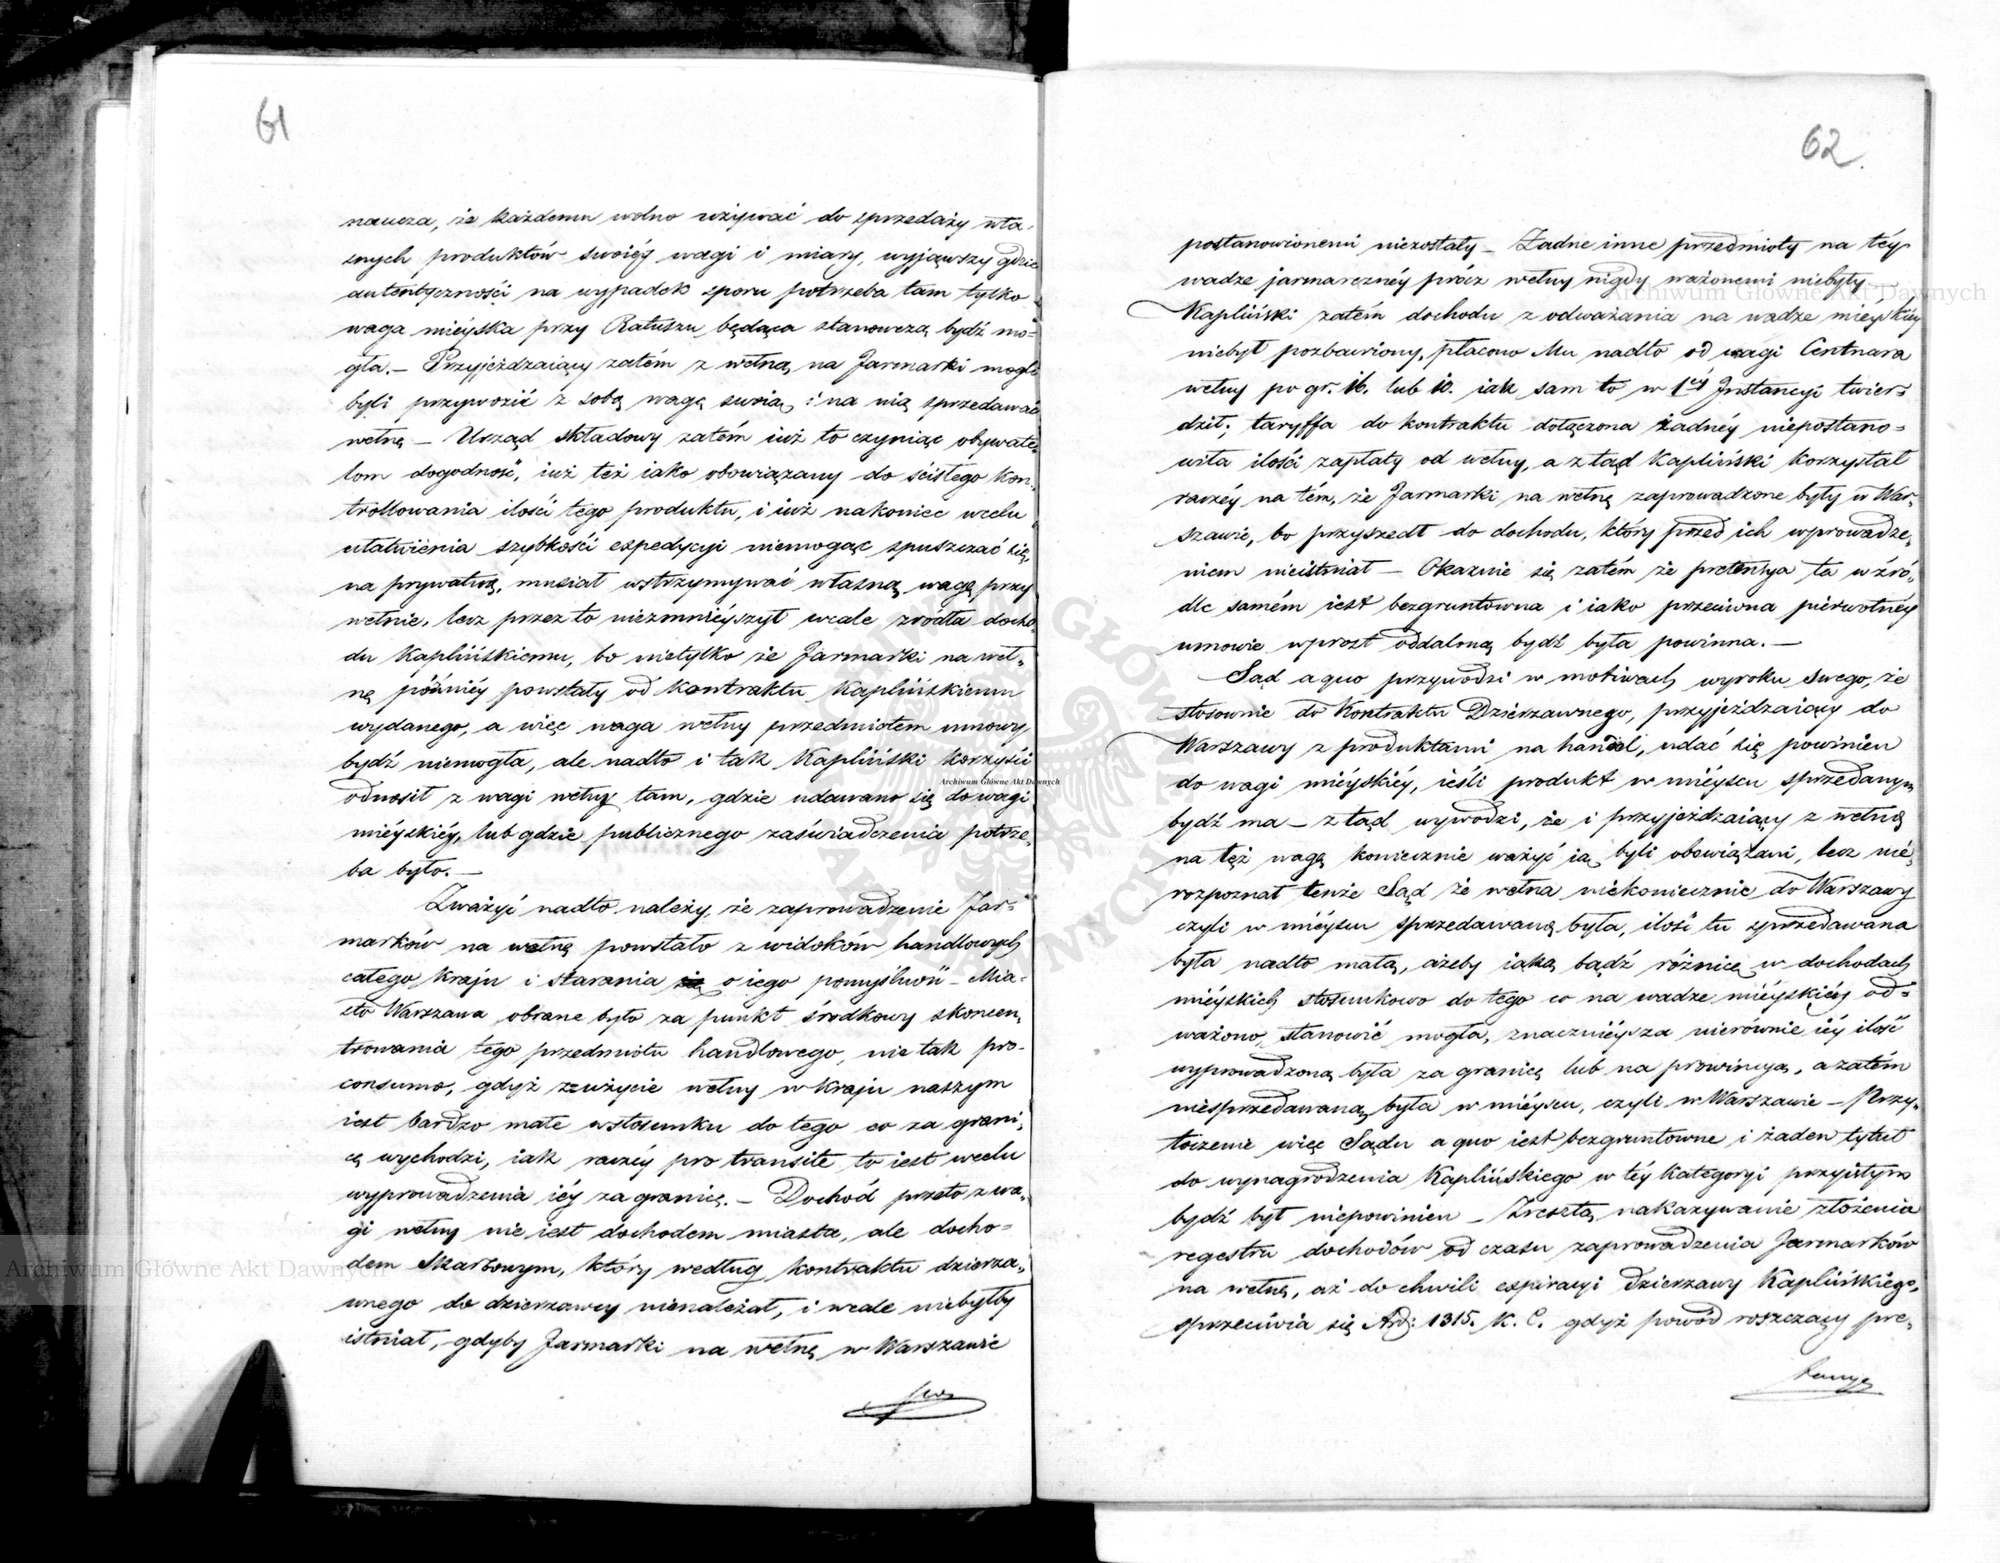 61
naucza, że każdemu wolno używać do sprzedaży wła-
snych produktów swoiéy wagi i miary, wyjąwszy gdzie
autentyczności na wypadek sporu potrzeba tam tylko
waga mieyska przy Ratuszu będąca stanowczą bydź mo-
gła. — Przyjeżdzaiący zatém z wełną na Jarmarki mogli
byli przywozić z sobą wagę swoią i na nią sprzedawać
wełnę — Urząd składowy zatém iuż to czyniąc obywate-
lom dogodność, iuż też iako obowiązany do ścisłego kon-
trollowania ilości tego produktu, i iuż nakoniec wcelu
ułatwienia szybkości expedycyi niemogąc spuszczać się
na prywatną, musiał wstrzymywać własną wagę przy
wełnie, lecz przez to niezmniéyszył wcale zródła docho-
du Kaplińskiemu, bo nietylko że Jarmarki na weł-
nę późniéy powstały od kontraktu Kaplińskiemu
wydanego, a więc waga wełny przedmiotem umowy
bydź niemogła, ale nadto i tak Kapliński korzyści
odnosił z wagi wełny tam, gdzie udawano się do wagi
miéyskiéy, lub gdzie publicznego zaświadczenia potrze-
ba było. —
Zważyć nadto należy, że zaprowadzenie Jar-
marków na wełnę powstało z widoków handlowych
całego kraju i starania o iego pomyślność — Mia-
sto Warszawa obrane było za punkt środkowy skoncen-
trowania tego przedmiotu handlowego, nie tak pro-
consumo, gdyż zużycie wełny w kraju naszym
iest bardzo małe wstosunku do tego co za grani-
cę wychodzi, iak raczéy pro transite to iest wcelu
wyprowadzenia iéy za granicę. — Dochód przeto z wa-
gi wełny nie iest dochodem miasta, ale docho-
dem Skarbowym, który według kontraktu dzierza-
wnego do dzierzawcy nienależał, i wcale niebyłby
istniał, gdyby Jarmarki na wełnę w Warszawie
62
postanowionemi niezostały — Żadne inne przedmioty na téy
wadze jarmarcznéy prócz wełny nigdy ważonemi niebyły —
Kapliński zatém dochodu z odważania na wadze mieyskiéy
niebył pozbawiony, płacono Mu nadto od wagi Centnara
wełny po gr. 16. lub 10. iak sam to w 1éy Instancyi twier-
dził; taryffa do kontraktu dołączona żadnéy niepostano-
wiła ilości zapłaty od wełny, a ztąd Kapliński korzystał
raczéy na tém, że Jarmarki na wełnę zaprowadzone były w War-
szawie, bo przyszedł do dochodu, który przed ich wprowadze-
niem nieistniał — Okazuie się zatém że pretensya ta w źró-
dle samém iest bezgruntowna i iako przeciwna pierwotnéy
umowie wprost oddaloną bydź była powinna. —
Sąd a quo przywodzi w motiwach wyroku swego, że
stosownie do Kontraktu Dzierzawnego, przyjeżdzaiący do
Warszawy z produktami na handel, udać się powinien
do wagi miéyskiéy, ieśli produkt w miéyscu sprzedanym
bydź ma — ztąd wywodzi, że i przyjeżdzaiący z wełną
na téż wagą koniecznie ważyć ią byli obowiązani, lecz nie-
rozpoznał tenże Sąd że wełna niekoniecznie do Warszawy
czyli w miéyscu sprzedawaną była, ilość tu sprzedawana
była nadto małą, ażeby iaką bądź różnicę w dochodach
miéyskich stosunkowo do tego co na wadze miéyskiéy od-
ważono, stanowić mogła, znacznieysza nierównie iéy ilość
wyprowadzoną była za granicę lub na prowincyą, a zatém
niesprzedawaną była w miéyscu, czyli w Warszawie — Przy-
toczenie więc Sądu a quo iest bezgruntowne i żaden tytuł
do wynagrodzenia Kaplińskiego w téy kategoryi przyiętym
bydź był niepowinien — Zresztą nakazywanie złożenia
regestru dochodów od czasu zaprowadzenia Jarmarków
na wełnę, aż do chwili expiracyi dzierzawy Kaplińskiego
sprzeciwia się Art: 1315. K. C. gdyż powód roszczący pre-
Archiwum Główne Akt Dawnych
Archiwum Główne Akt Dawnych
Archiwum Główne Akt Dawnych